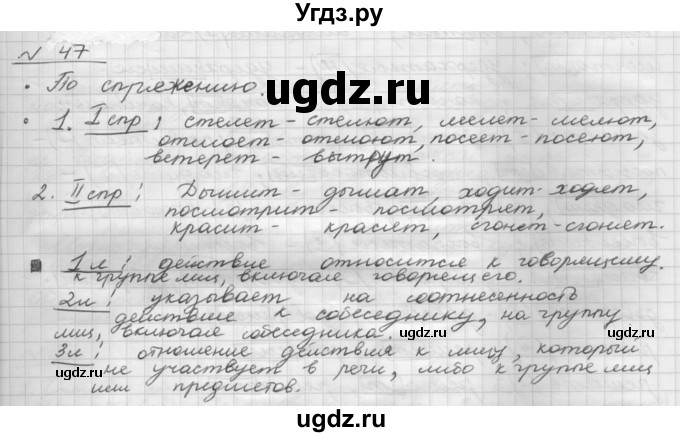 Угдз.ру
№ 47
• По спряжению.
• 1. I спр; стелет - стелют, мелет - мелют,
отмоет - отмоют, посеет - посеют,
ветерет - вытрут.
2. II спр! Дышит - дышат, ходит - ходят,
посмотрит - посмотрят,
красит - красят, сгонет - сгонят.
1 л! действие относится к говорящему.
к группе лиц, включая говорящего.
2л! указывает на соотнесенность
действия к собеседнику, на группу
лиц, включая собеседника.
3л! отношение действия к лицу, который
не участвует в речи, либо к группе лиц
или предметов.
ugdz.ru
ugdz.ru
ugdz.ru
ugdz.ru
ugdz.ru
ugdz.ru
ugdz.ru
ugdz.ru
ugdz.ru